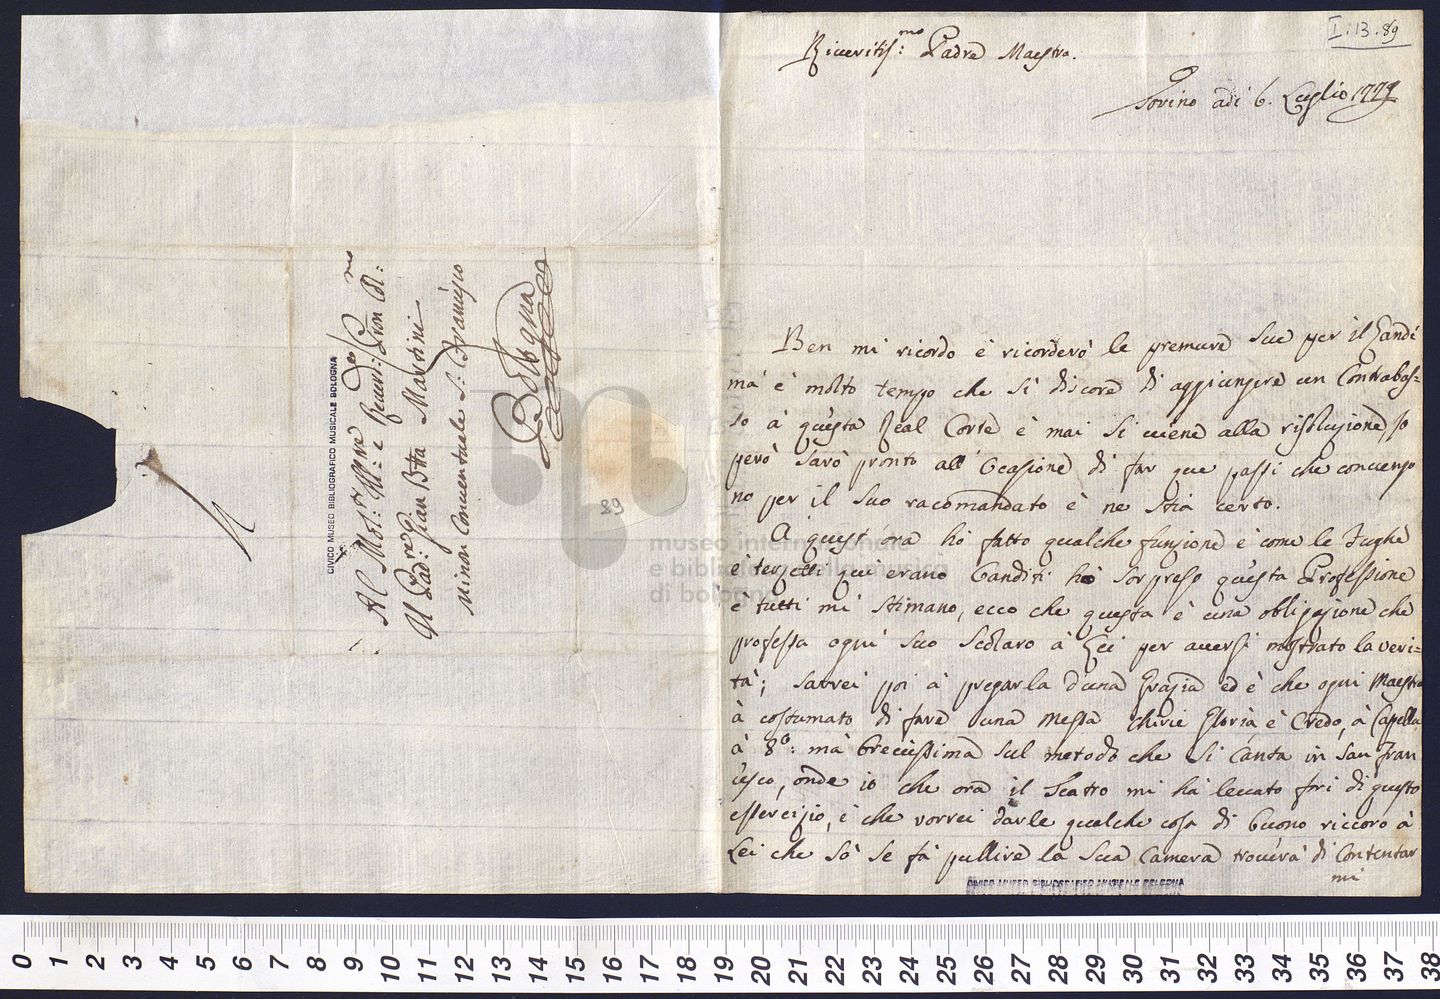 I. 13. 89
Riveritis:mo Padre Maestro.
Torino adi 6. Luglio 1779
Ben mi ricordo è ricorderò le premure Sue per il Zandi
mà è molto tempo che si discore di aggiungere un Contrabas=
so à questa Real Corte è mai si viene alla risoluzione, Io
però sarò pronto all' Ocasione di far que passi che convengo
no per il Suo racomandato è ne stia certo.
A quest'ora hò fatto qualche funzione è come le Fughe
è terzetti qui erano banditi hò sorpreso questa Professione
è tutti mi stimano, ecco che questa è una obligazione che
professa ogni Suo Scolaro à Lei per aversi mostrato la veri=
tà; Savrei poi à pregarla d'una Grazia ed è che ogni Maestro
à costumato di fare una Messa Chirie Gloria è Credo, à Capella
à 8º: mà brevissima sul metodo che si Canta in San Fran
cesco, onde io che ora il Teatro mi hà levato fori di questo
essercizio, è che vorrei darle qualche cosa di buono riccoro à
Lei che sò se fà pullire la Sua Camera troverà di Contentar
mi
Al Mol: Rev:
Il Pad:re Gian Btta Martini
Minor Conventuale S: Francesco
Bologna
CIVICO MUSEO BIBLIOGRAFICO MUSICALE BOLOGNA
89
museo internazionale
e biblioteca della musica
di bologna
CIVICO MUSEO BIBLIOGRAFICO MUSICALE BOLOGNA
0 1 2 3 4 5 6 7 8 9 10 11 12 13 14 15 16 17 18 19 20 21 22 23 24 25 26 27 28 29 30 31 32 33 34 35 36 37 38